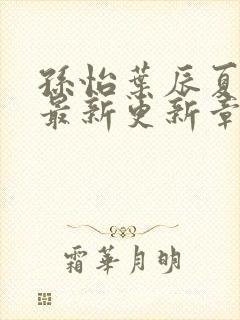 孫怡葉辰夏
最新更新章
霜華月明